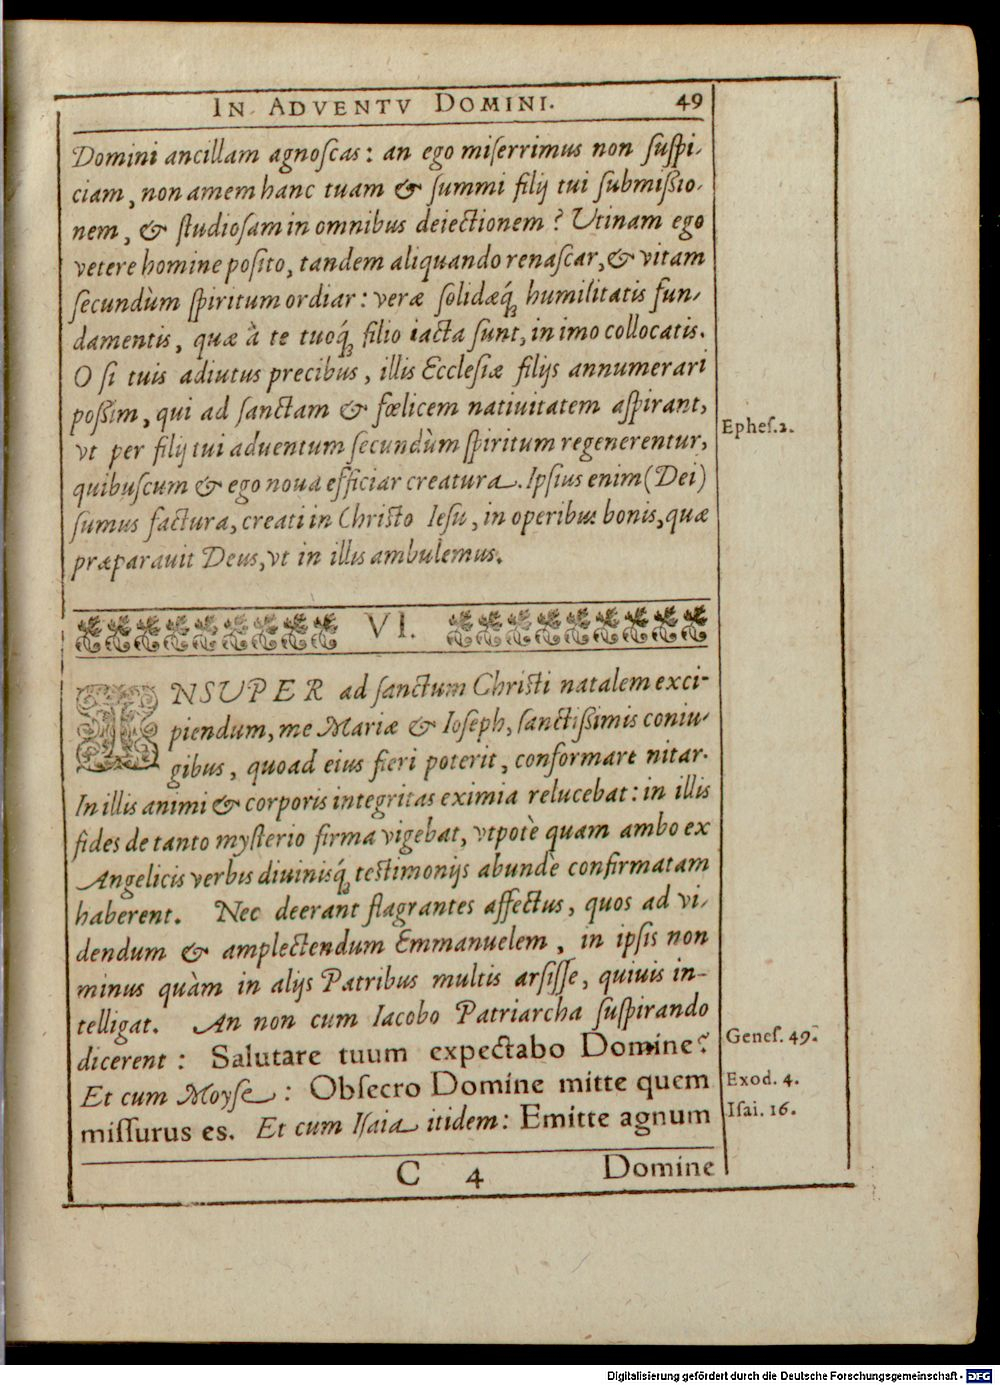 IN ADVENTV DOMINI. 49
Domini ancillam agnoſcas: an ego miſerrimus non ſuſpi-
ciam, non amem hanc tuam & ſummi filij tui ſubmißio-
nem, & ſtudioſam in omnibus deiectionem? Utinam ego
vetere homine poſito, tandem aliquando renaſcar, & vitam
ſecundùm ſpiritum ordiar: veræ ſolidæq́ꝫ humilitatis fun-
damentis, quæ à te tuoq́ꝫ filio iacta ſunt, in imo collocatis.
O ſi tuis adiutus precibus, illis Eccleſiæ filijs annumerari
poßim, qui ad ſanctam & fœlicem natiuitatem aſpirant,
vt per filij tui aduentum ſecundùm ſpiritum regenerentur,
Epheſ.2.
quibuſcum & ego noua efficiar creatura. Ipſius enim (Dei)
ſumus factura, creati in Chriſto Ieſu, in operibus bonis, quæ
præparauit Deus, vt in illis ambulemus.
VI.
INSUPER ad ſanctum Chriſti natalem exci-
piendum, me Mariæ & Ioſeph, ſanctißimis coniu-
gibus, quoad eius fieri poterit, conformare nitar.
In illis animi & corporis integritas eximia relucebat: in illis
fides de tanto myſterio firma vigebat, vtpotè quam ambo ex
Angelicis verbis diuinisq́ꝫ teſtimonijs abundè confirmatam
haberent. Nec deerant flagrantes affectus, quos ad vi-
dendum & amplectendum Emmanuelem, in ipſis non
minus quàm in alijs Patribus multis arſiſſe, quiuis in-
telligat. An non cum Iacobo Patriarcha ſuſpirando
dicerent: Salutare tuum expectabo Domine?
Geneſ. 49.
Et cum Moyſe: Obſecro Domine mitte quem
Exod. 4.
miſſurus es. Et cum Iſaia itidem: Emitte agnum
Iſai. 16.
C 4 Domine
Digitalisierung gefördert durch die Deutsche Forschungsgemeinschaft - DFG